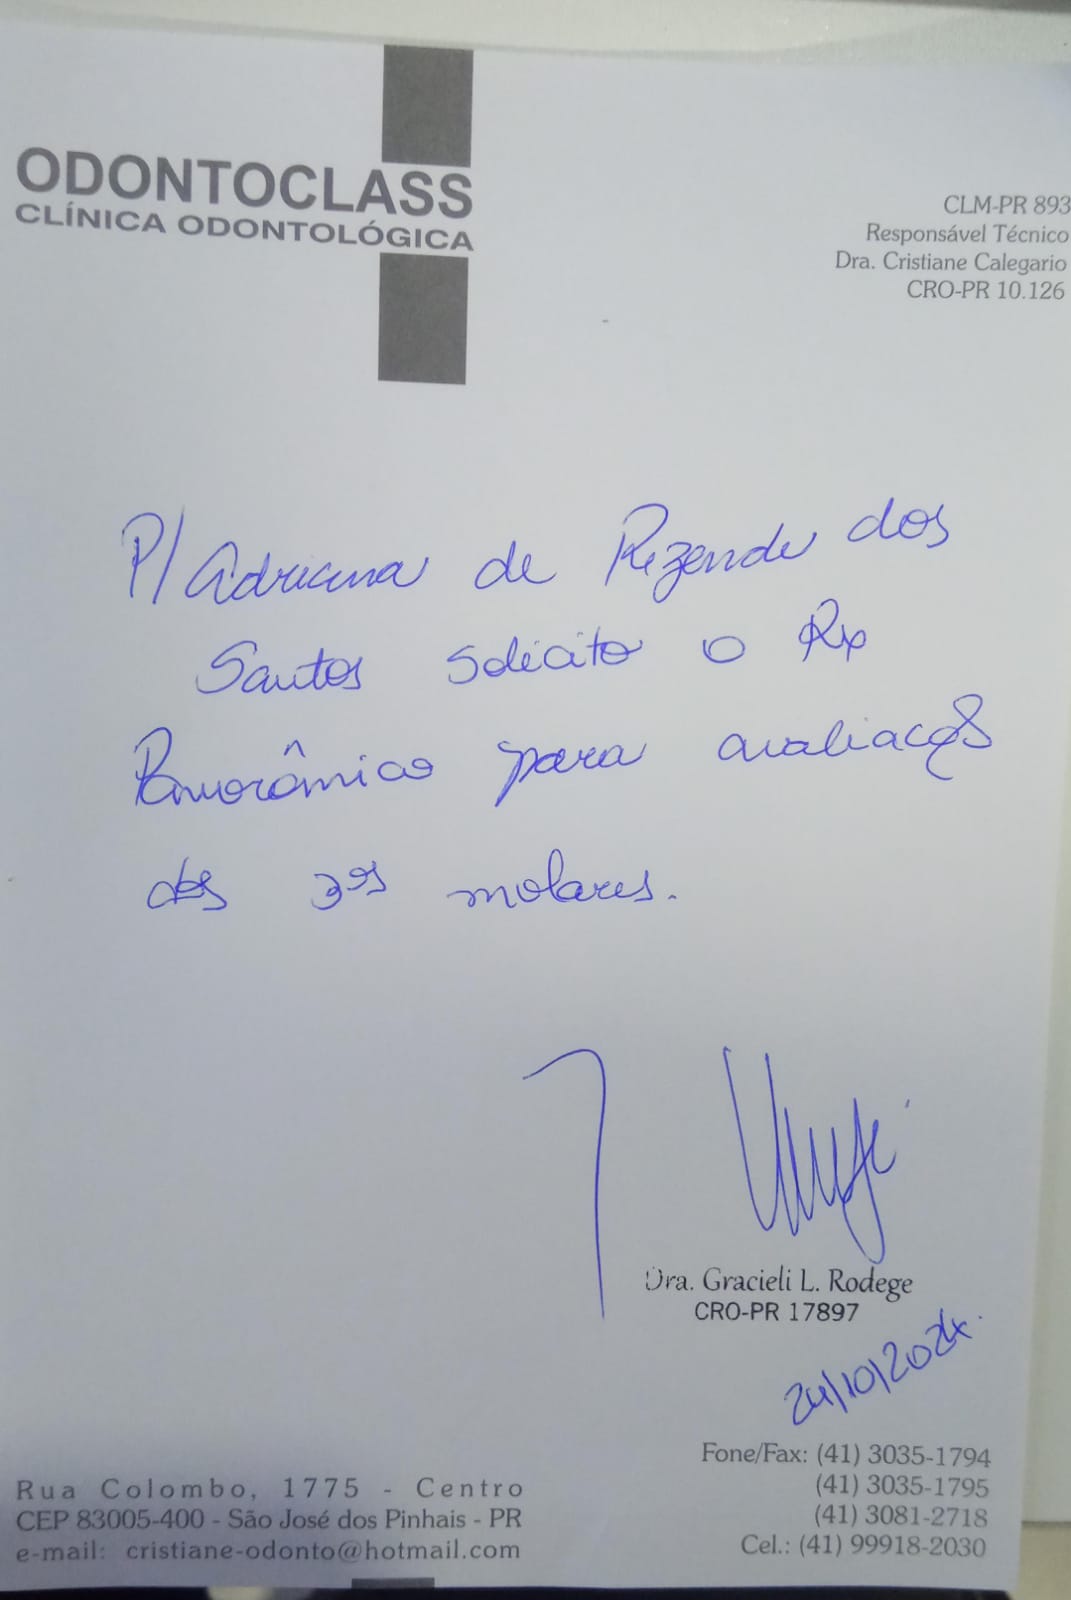 ODONTOCLASS
CLÍNICA ODONTOLÓGICA
CLM-PR 893
Responsável Técnico
Dra. Cristiane Calegario
CRO-PR 10.126
P/ Adriana de Rezende dos
Santos solicito o Rx
Panorâmico para avaliação
dos 3os molares.
Dra. Gracieli L. Rodege
CRO-PR 17897
24/10/2024.
Fone/Fax: (41) 3035-1794
(41) 3035-1795
(41) 3081-2718
Cel.: (41) 99918-2030
Rua Colombo, 1775 - Centro
CEP 83005-400 - São José dos Pinhais - PR
e-mail: cristiane-odonto@hotmail.com